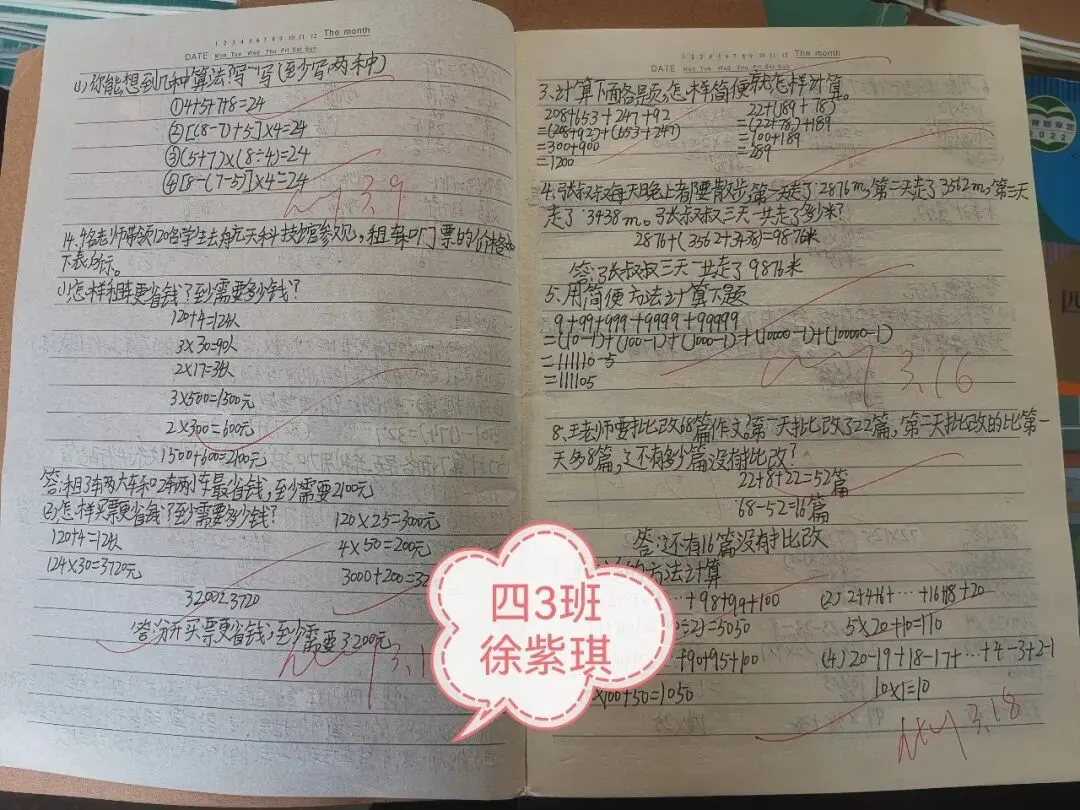 1 2 3 4 5 6 7 8 9 10 11 12 The month
DATE Mon Tue Wed Thu Fri Sat Sun
(1)你能想到几种算法?写一写(至少写两种)
①4+5+7+8=24
②[(8-7)+5]×4=24
③(5+7)×(8÷4)=24
④[8-(7-5)]×4=24
3.9
14.4名老师带领120名学生去航天科技馆参观,租车叫门票的价格如
下表所示。
(1)怎样租车更省钱?至少需要多少钱?
120+4=124人
3×30=90人
2×17=34人
3×500=1500元
2×300=600元
1500+600=2100元
答:租3车两大车和2车两小车最省钱,至少需要2100元
(2)怎样买票更省钱?至少需要多少钱?
120×25=3000元
120+4=124人
4×50=200元
124×30=3720元
3000+200=32
3200<3720
答:分开买票更省钱;至少需要3200元
3.1
1 2 3 4 5 6 7 8 9 10 11 12 The month
DATE Mon Tue Wed Thu Fri Sat Sun
3.计算下面各题,怎样简便就怎样计算。
208+653+247+92
=(208+92)+(653+247)
=300+900
=1200
22+(189+78)
=(22+78)+189
=100+189
=289
4.张叔叔每天晚上都要散步,第一天走了2876m,第二天走了3562m,第三天
走了3438m。张叔叔三天一共走了多少米?
2876+(3562+3438)=9876米
答:张叔叔三天一共走了9876米
5.用简便方法计算下题
9+99+999+9999+99999
=(10-1)+(100-1)+(1000-1)+(10000-1)+(100000-1)
=111110-5
=111105
3.16
8.王老师要批改68篇作文,第一天批改了22篇,第二天批改的比第一
天多8篇,还有多少篇没有批改?
22+8+22=52篇
68-52=16篇
答:还有16篇没有批改
的方法计算
+98+99+100
(2)2+4+6+…+16+18+20
÷2)=5050
5×20+10=110
+90+95+100
(4)20-19+18-17+…+4-3+2-1
×100+50=1050
10×1=10
3.18
四3班
徐紫琪
2022